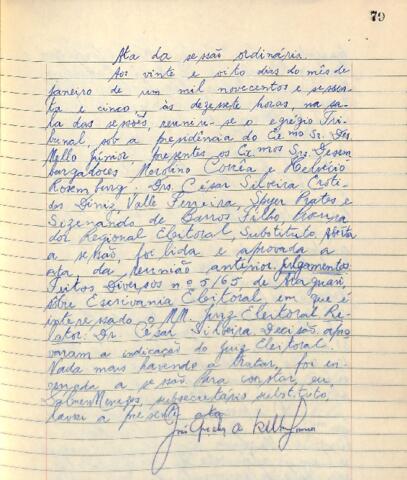 79
Ata da sessão ordinária.
Aos vinte e oito dias do mês de
janeiro de um mil novecentos e sessen-
ta e cinco, às dezessete horas, na sa-
la das sessões, reuniu-se o egrégio Tri-
bunal, sob a presidência do Exmo Sr. Des.
Mello Júnior, presentes os Exmos Srs. Desem-
bargadores Merolino Corrêa e Helvécio
Rosemburg. Drs. César Silveira, Cristi-
dos Diniz, Valle Ferreira, Spyer Prates e
Sizenando de Barros Filho, Procura
dor Regional Eleitoral, Substituto. Aberta
a sessão, foi lida e aprovada a
ata da reunião anterior. Julgamentos
Feitos Diversos nº 5/65 de Araguari,
sôbre Escrivania Eleitoral em que é
interessado o MM. Juiz Eleitoral Re-
lator: Dr. César Silveira. Decisão: apro
varam a indicação do Juiz Eleitoral.
Nada mais havendo a tratar, foi en-
cerrada a sessão. Para constar, eu,
Menezes, subsecretário substituto,
lavrei a presente ata.